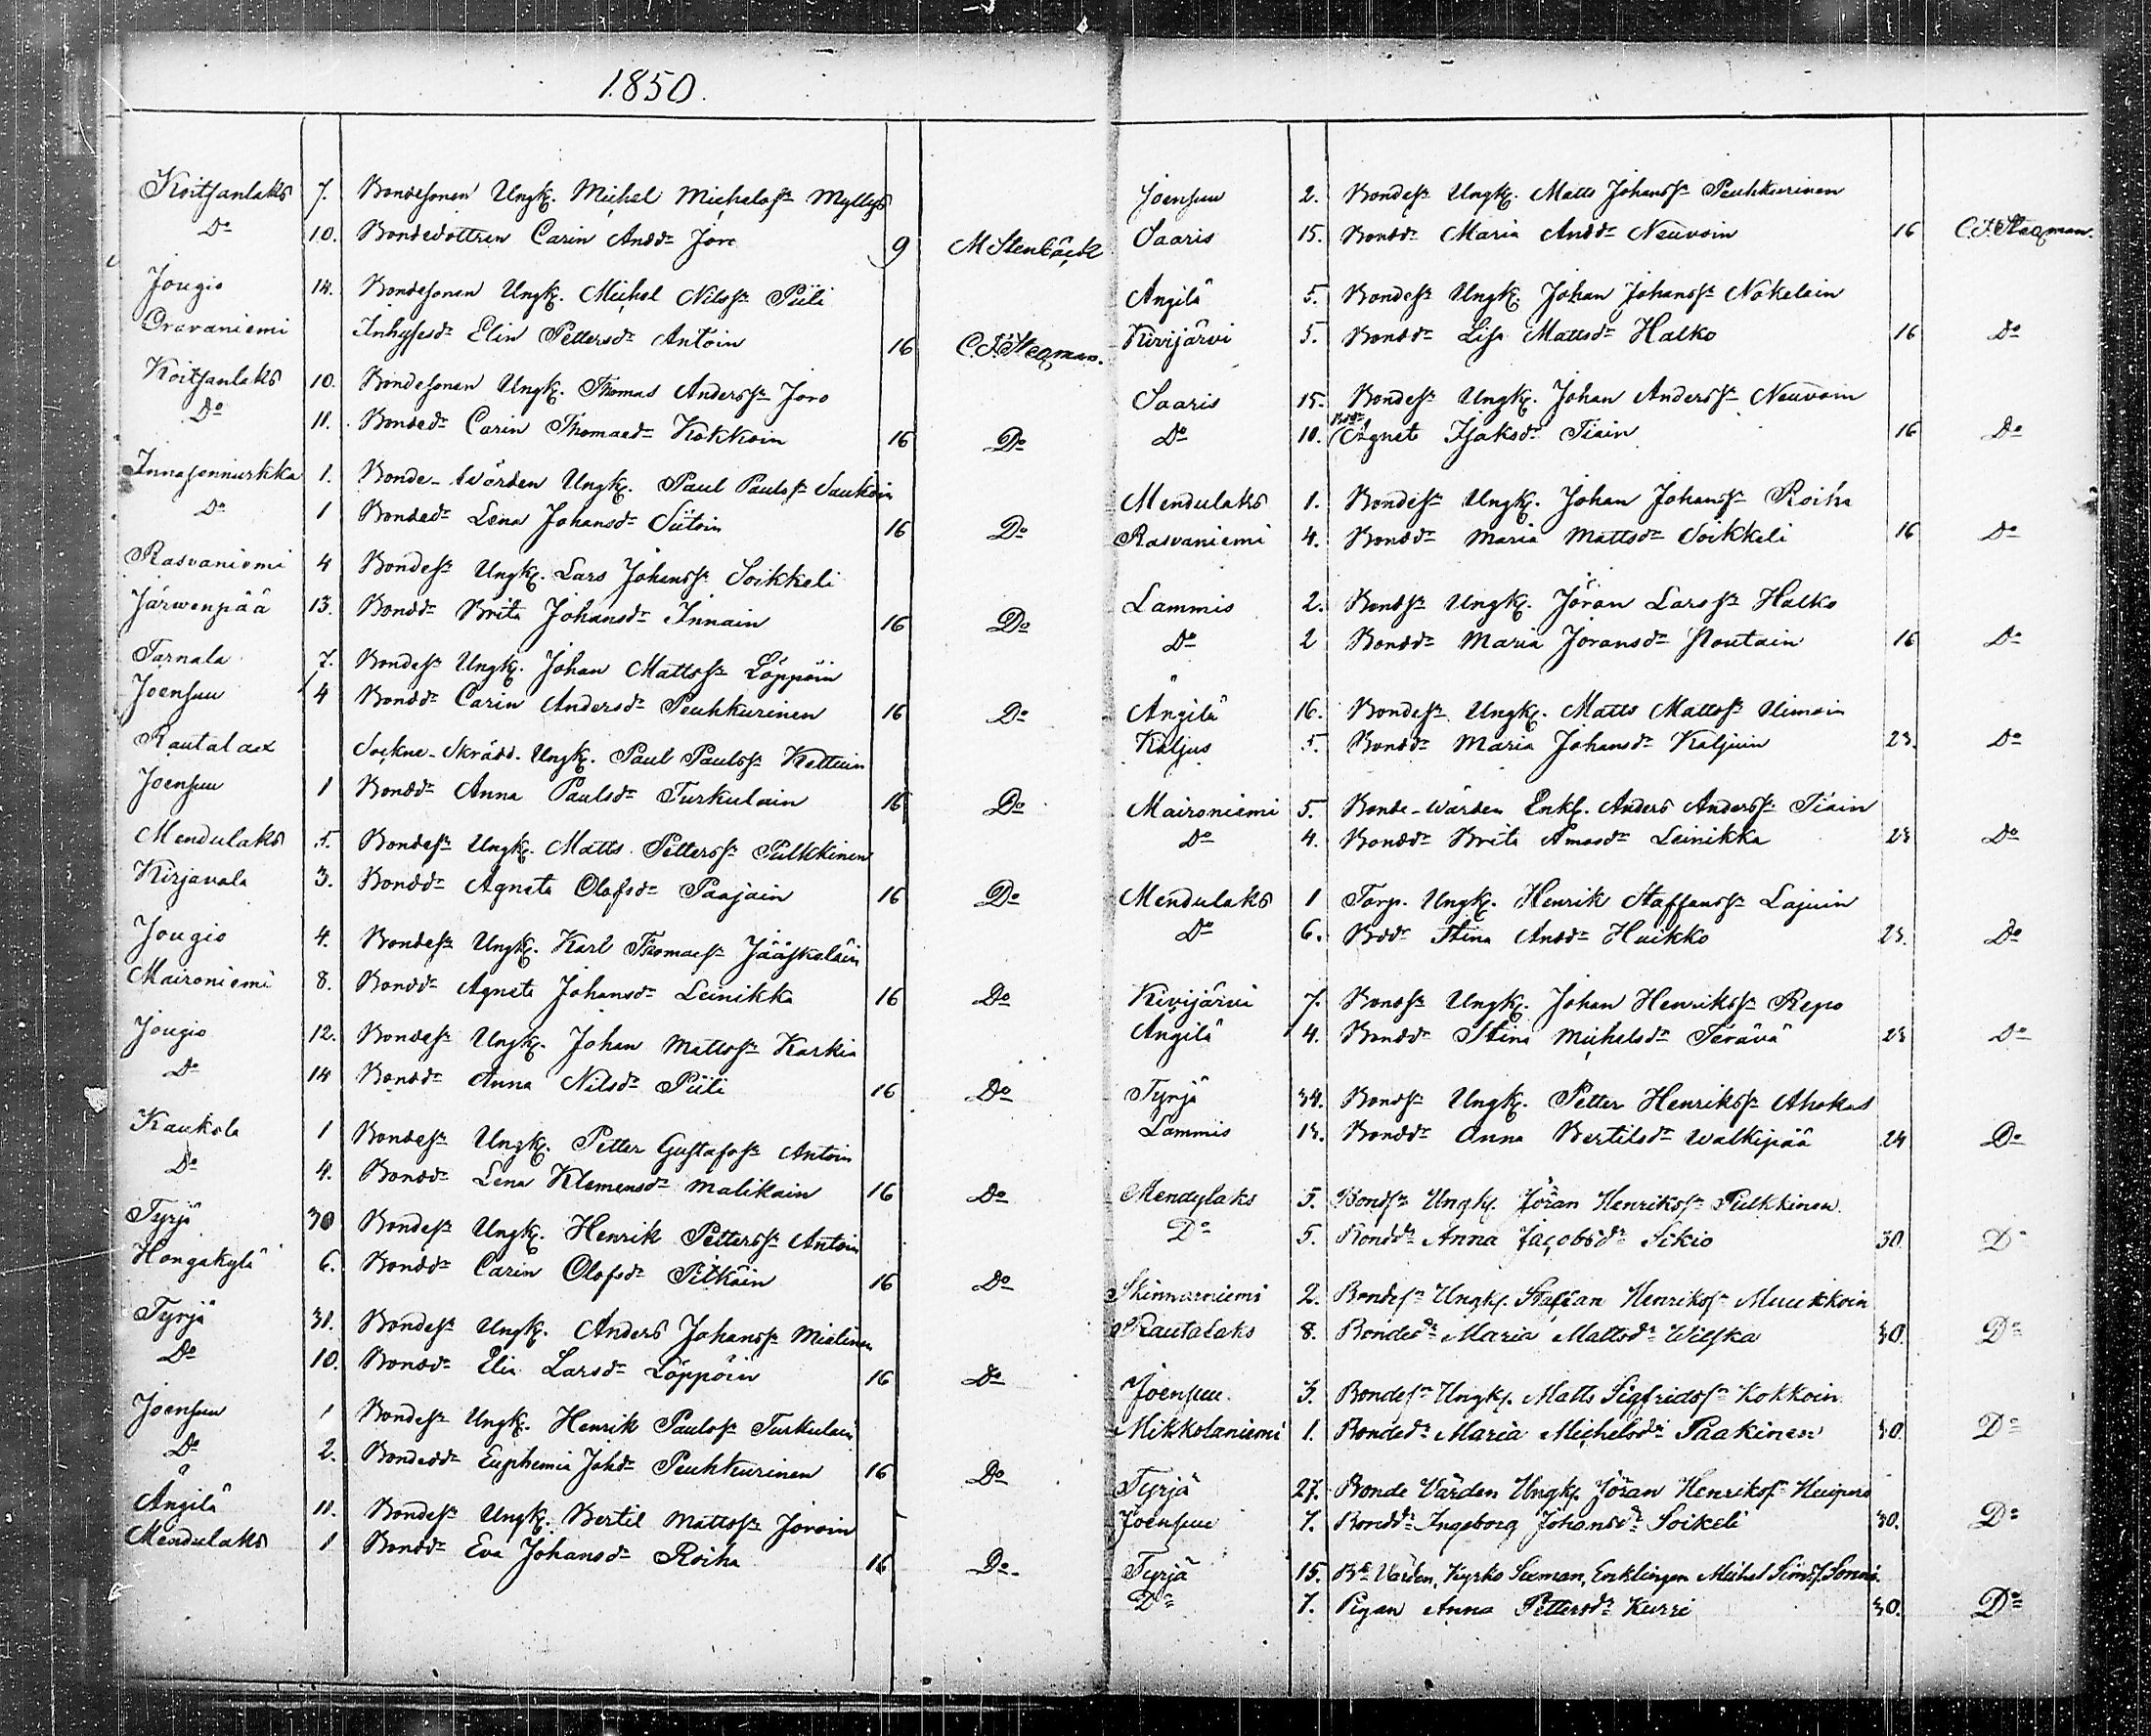 1850.
Koitsanlaks 7. Bondesonen Ungk. Michel Michelss: Myllys
Do 10. Bondedottren Carin Andd: Joro 9 M Stenbäck
Jougio 14. Bondesonen Ungk. Michel Nilss: Piili
Oravaniemi Inhysesd: Elin Pettersd: Antoin 16 C.F. Stegman.
Koitsanlaks 10. Bondesonen Ungk. Thomas Anderss: Joro
Do 11. Bonded: Carin Thomaed: Kokkoin 16 Do
Innasennurkka 1. Bonde-Värden Ungk. Paul Pauls: Saukoin
Do 1 Bonded: Lena Johansd: Siitoin 16 Do
Rasvaniemi 4 Bondes: Ungk. Lars Johanss: Soikkeli
Järwenpää 13. Bondd: Brita Johansd: Innain 16 Do
Tarnala 7. Bondes: Ungk. Johan Mattss: Löppöin
Joensuu 4 Bondd: Carin Andersd: Peuhkurinen 16 Do
Rautalax Sockne-Skrädd. Ungk. Paul Paulss: Kettuin
Joensuu 1 Bondd: Anna Paulsd: Turkulain 16 Do
Mendulaks 5. Bondes: Ungk. Matts Petterss: Pulkkinen
Kirjavala 3. Bondd: Agneta Olofsd: Paajain 16 Do
Jougio 4. Bondes: Ungk. Karl Thomaes: Jääskeläin
Maironiemi 8. Bondd: Agneta Johansd: Leinikka 16 Do
Jougio 12. Bondes: Ungk. Johan Mattss: Karkia
Do 14 Bondd: Anna Nilsd: Piili 16 Do
Kaukola 1 Bondes: Ungk. Petter Gustafss: Antoin
Do 4. Bondd: Lena Klemensd: Malikain 16 Do
Tyrjä 30 Bondes: Ungk. Henrik Petterss: Antoin
Hongakylä 6. Bondd: Carin Olofsd: Pitkäin 16 Do
Tyrjä 31. Bondes: Ungk. Anders Johanss: Mielinen
Do 10. Bondd: Elin Larsd: Löppöin 16 Do
Joensuu 1 Bondes: Ungk. Henrik Paulss: Turkulain
Do 2. Bondedd: Euphemia Johd: Peuhkurinen 16 Do
Ängilä 11. Bondes: Ungk. Bertil Mattss: Joroin
Mendulaks 1 Bondd: Eva Johansd: Roiha 16 Do.
Joensuu 2. Bondes: Ungk. Matts Johanss: Peuhkurinen
Saaris 15. Bondd: Maria Andd: Neuvoin 16 C.F. Stegman.
Ängilä 5. Bondes: Ungk. Johan Johanss: Nokelain
Kivijärvi 5. Bondd: Lisa Mattsd: Halko 16 Do
Saaris 15. Bondes: Ungk. Johan Anderss: Neuvoin
Do 10. Bdd: Agneta Isaksd: Tiain 16 Do
Mendulaks 1. Bondes: Ungk. Johan Johanss: Roiha
Rasvaniemi 4. Bondd: Maria Mattsd: Soikkeli 16 Do
Lammis 2. Bonds: Ungk. Jöran Larss: Halko
Do 2 Bondd: Maria Joransd: Noutain 16 Do
Ängilä 16. Bondes: Ungk. Matts Mattss: Uimain
Kaljus 5. Bondd: Maria Johansd: Kaljuin 23. Do
Maironiemi 5. Bonde-Wärden Enkl. Anders Anderss: Tiain
Do 4. Bondd: Brita Amosd: Leinikka 23 Do
Mendulaks 1 Torp. Ungk. Henrik Staffanss: Lajuin
Do 6. Bdd: Stina Andd: Huikko 23. Do
Kivijärvi 7. Bonds: Ungk. Johan Henrikss: Repo
Ängilä 4. Bondd: Stina Michelsd: Terävä 23 Do
Tyrjä 34. Bonds: Ungk. Petter Henrikss: Ahokas
Lammis 13. Bondd: Anna Bertilsd: Walkipää 24 Do
Mendylaks 5. Bonds: Ungk. Jöran Henrikss: Pulkkinen.
Do 5. Bondd: Anna Jacobsd: Sikiö 30. Do
Skinnarniemi 2. Bondes: Ungk. Staffan Henrikss: Muukkoin
Rautalaks 8. Bonded: Maria Mattsd: Wilska 30. Do
Joensuu. 3. Bondes: Ungk. Matts Sigfridss: Kokkoin.
Mikkolaniemi 1. Bonded: Maria Michelsd: Paakinen 30. Do
Tyrjä 27. Bonde Värden Ungk. Jöran Henrikss: Kuipero
Joensuu 7. Bondd: Ingeborg Johansd: Soikeli 30. Do
Tyrjä 15. Bde Värden, Kyrko Sexman, Enklingen Michel Simss. Sonni.
Do 7. Pigan Anna Pettersd: Kurri 30. Do